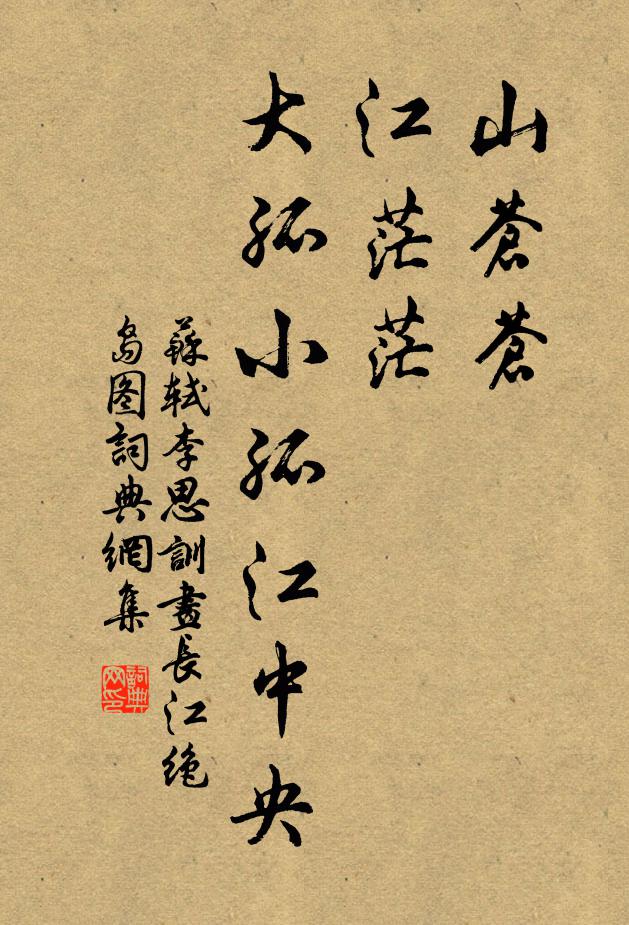 山蒼蒼
江茫茫
大孤小孤江中央
蘇軾李思訓畫長江绝
島图詞典網集
詞典网印